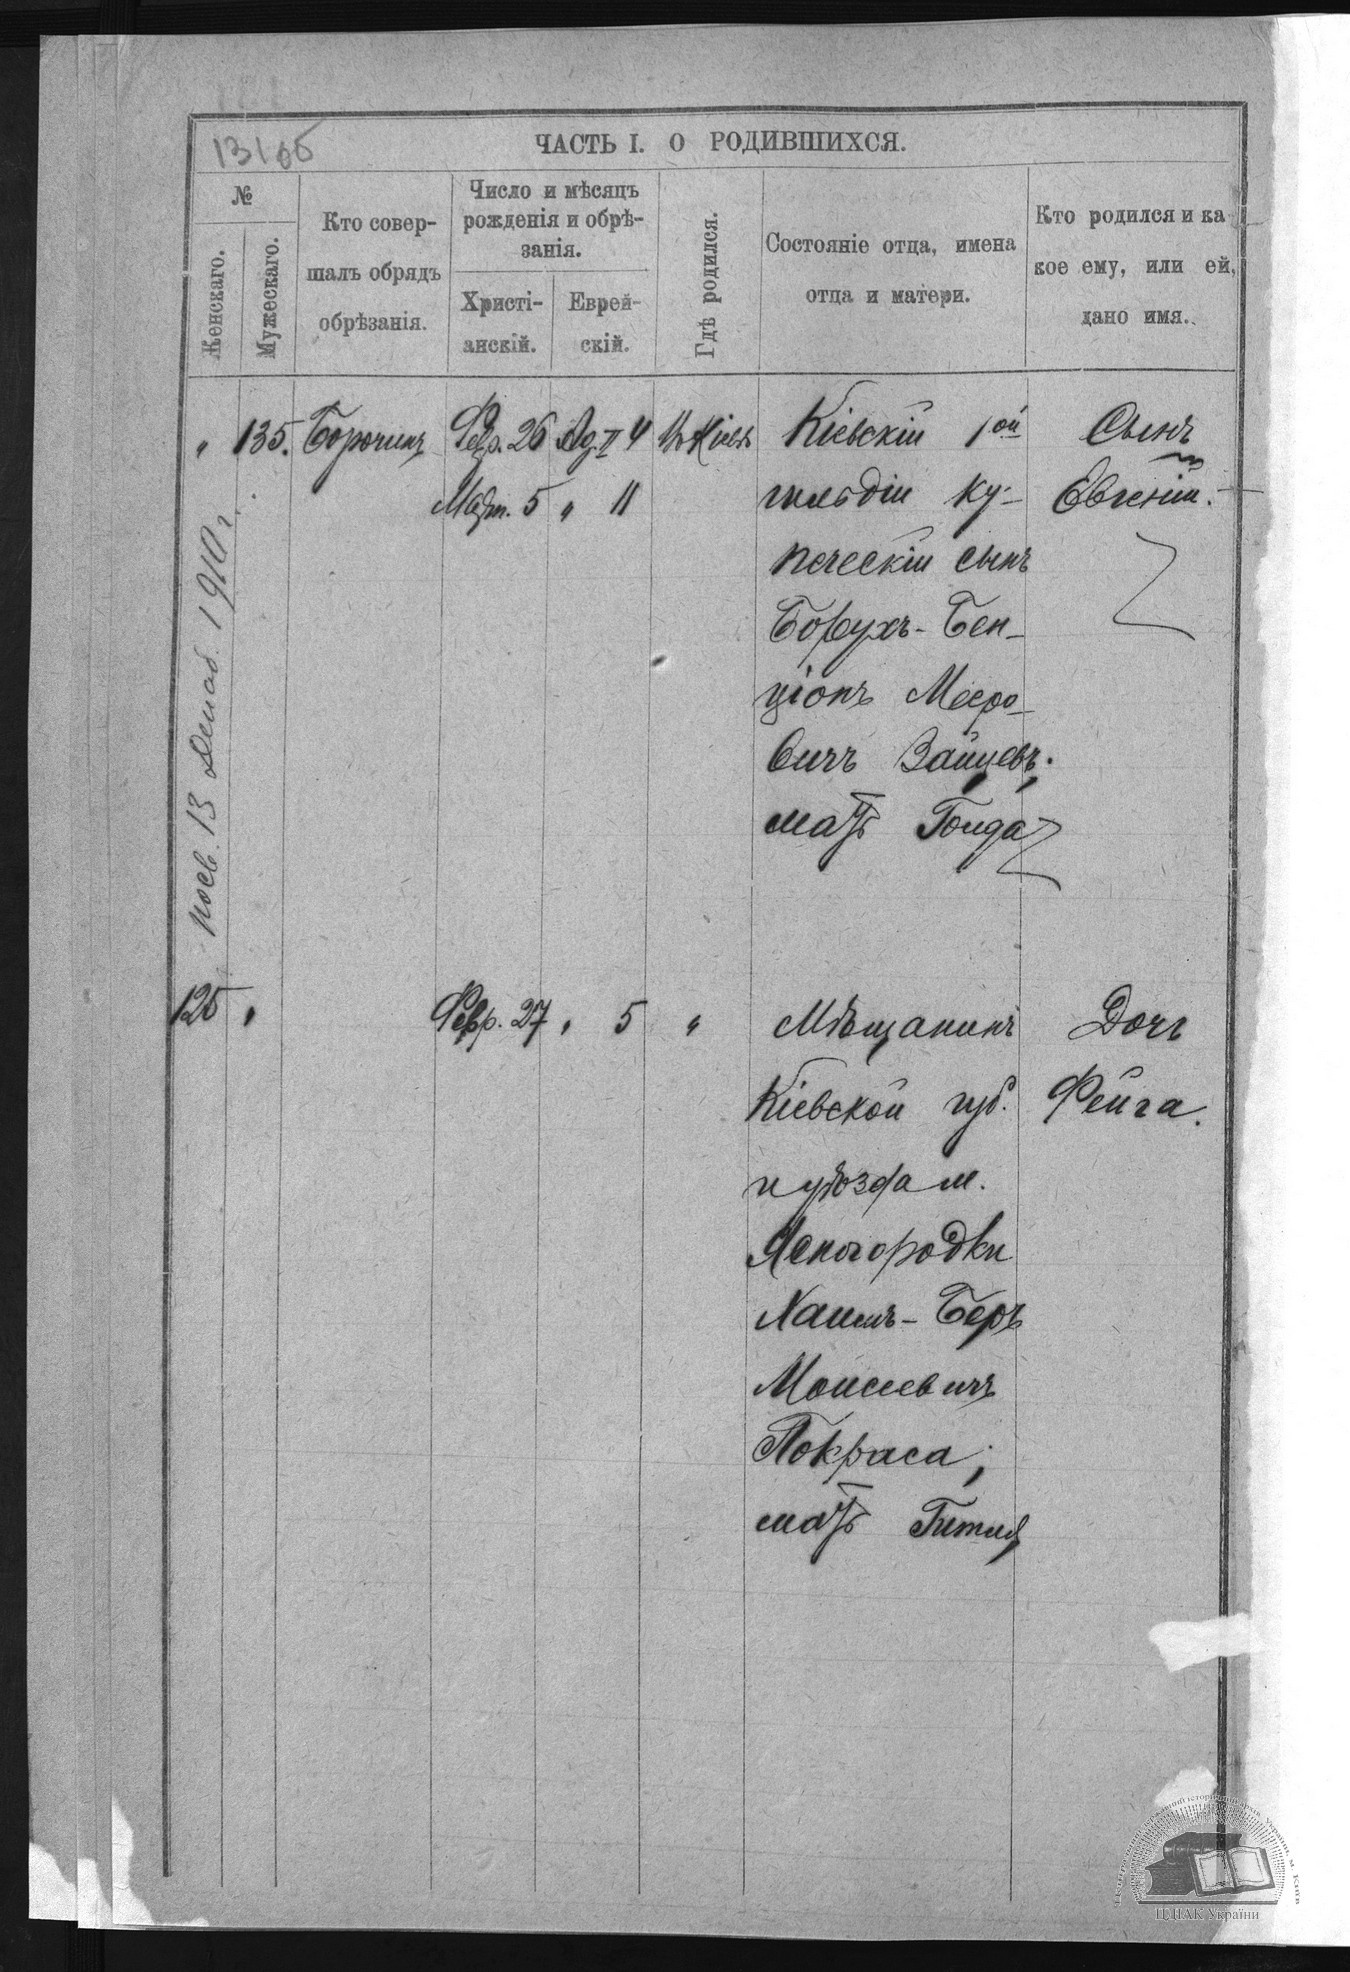 131 об
ЧАСТЬ I. О РОДИВШИХСЯ.
№
Женскаго.
Мужескаго.
Кто совер-
шалъ обрядъ
обрѣзанія.
Число и мѣсяцъ
рожденія и обрѣ-
занія.
Христі-
анскій.
Еврей-
скій.
Гдѣ родился.
Состояніе отца, имена
отца и матери.
Кто родился и ка
кое ему, или ей,
дано имя.
" 135. Борочинъ Февр. 26 Ад. II 4 Въ Кіевѣ Кіевскій 1ой Сынъ
Март. 5 " 11 гильдіи ку- Евгеній.
печескій сынъ
Борухъ-Бен-
ціонъ Мееро-
вичъ Зайцевъ.
мать Голда
13 1910 г.
125 " Февр. 27 " 5 " Мѣщанинъ Дочь
Кіевской губ. Фейга.
и уѣзда м.
Ясногородки
Хаимъ-Беръ
Моисеевичъ
Покраса;
мать Гитля
ЦДІАК України